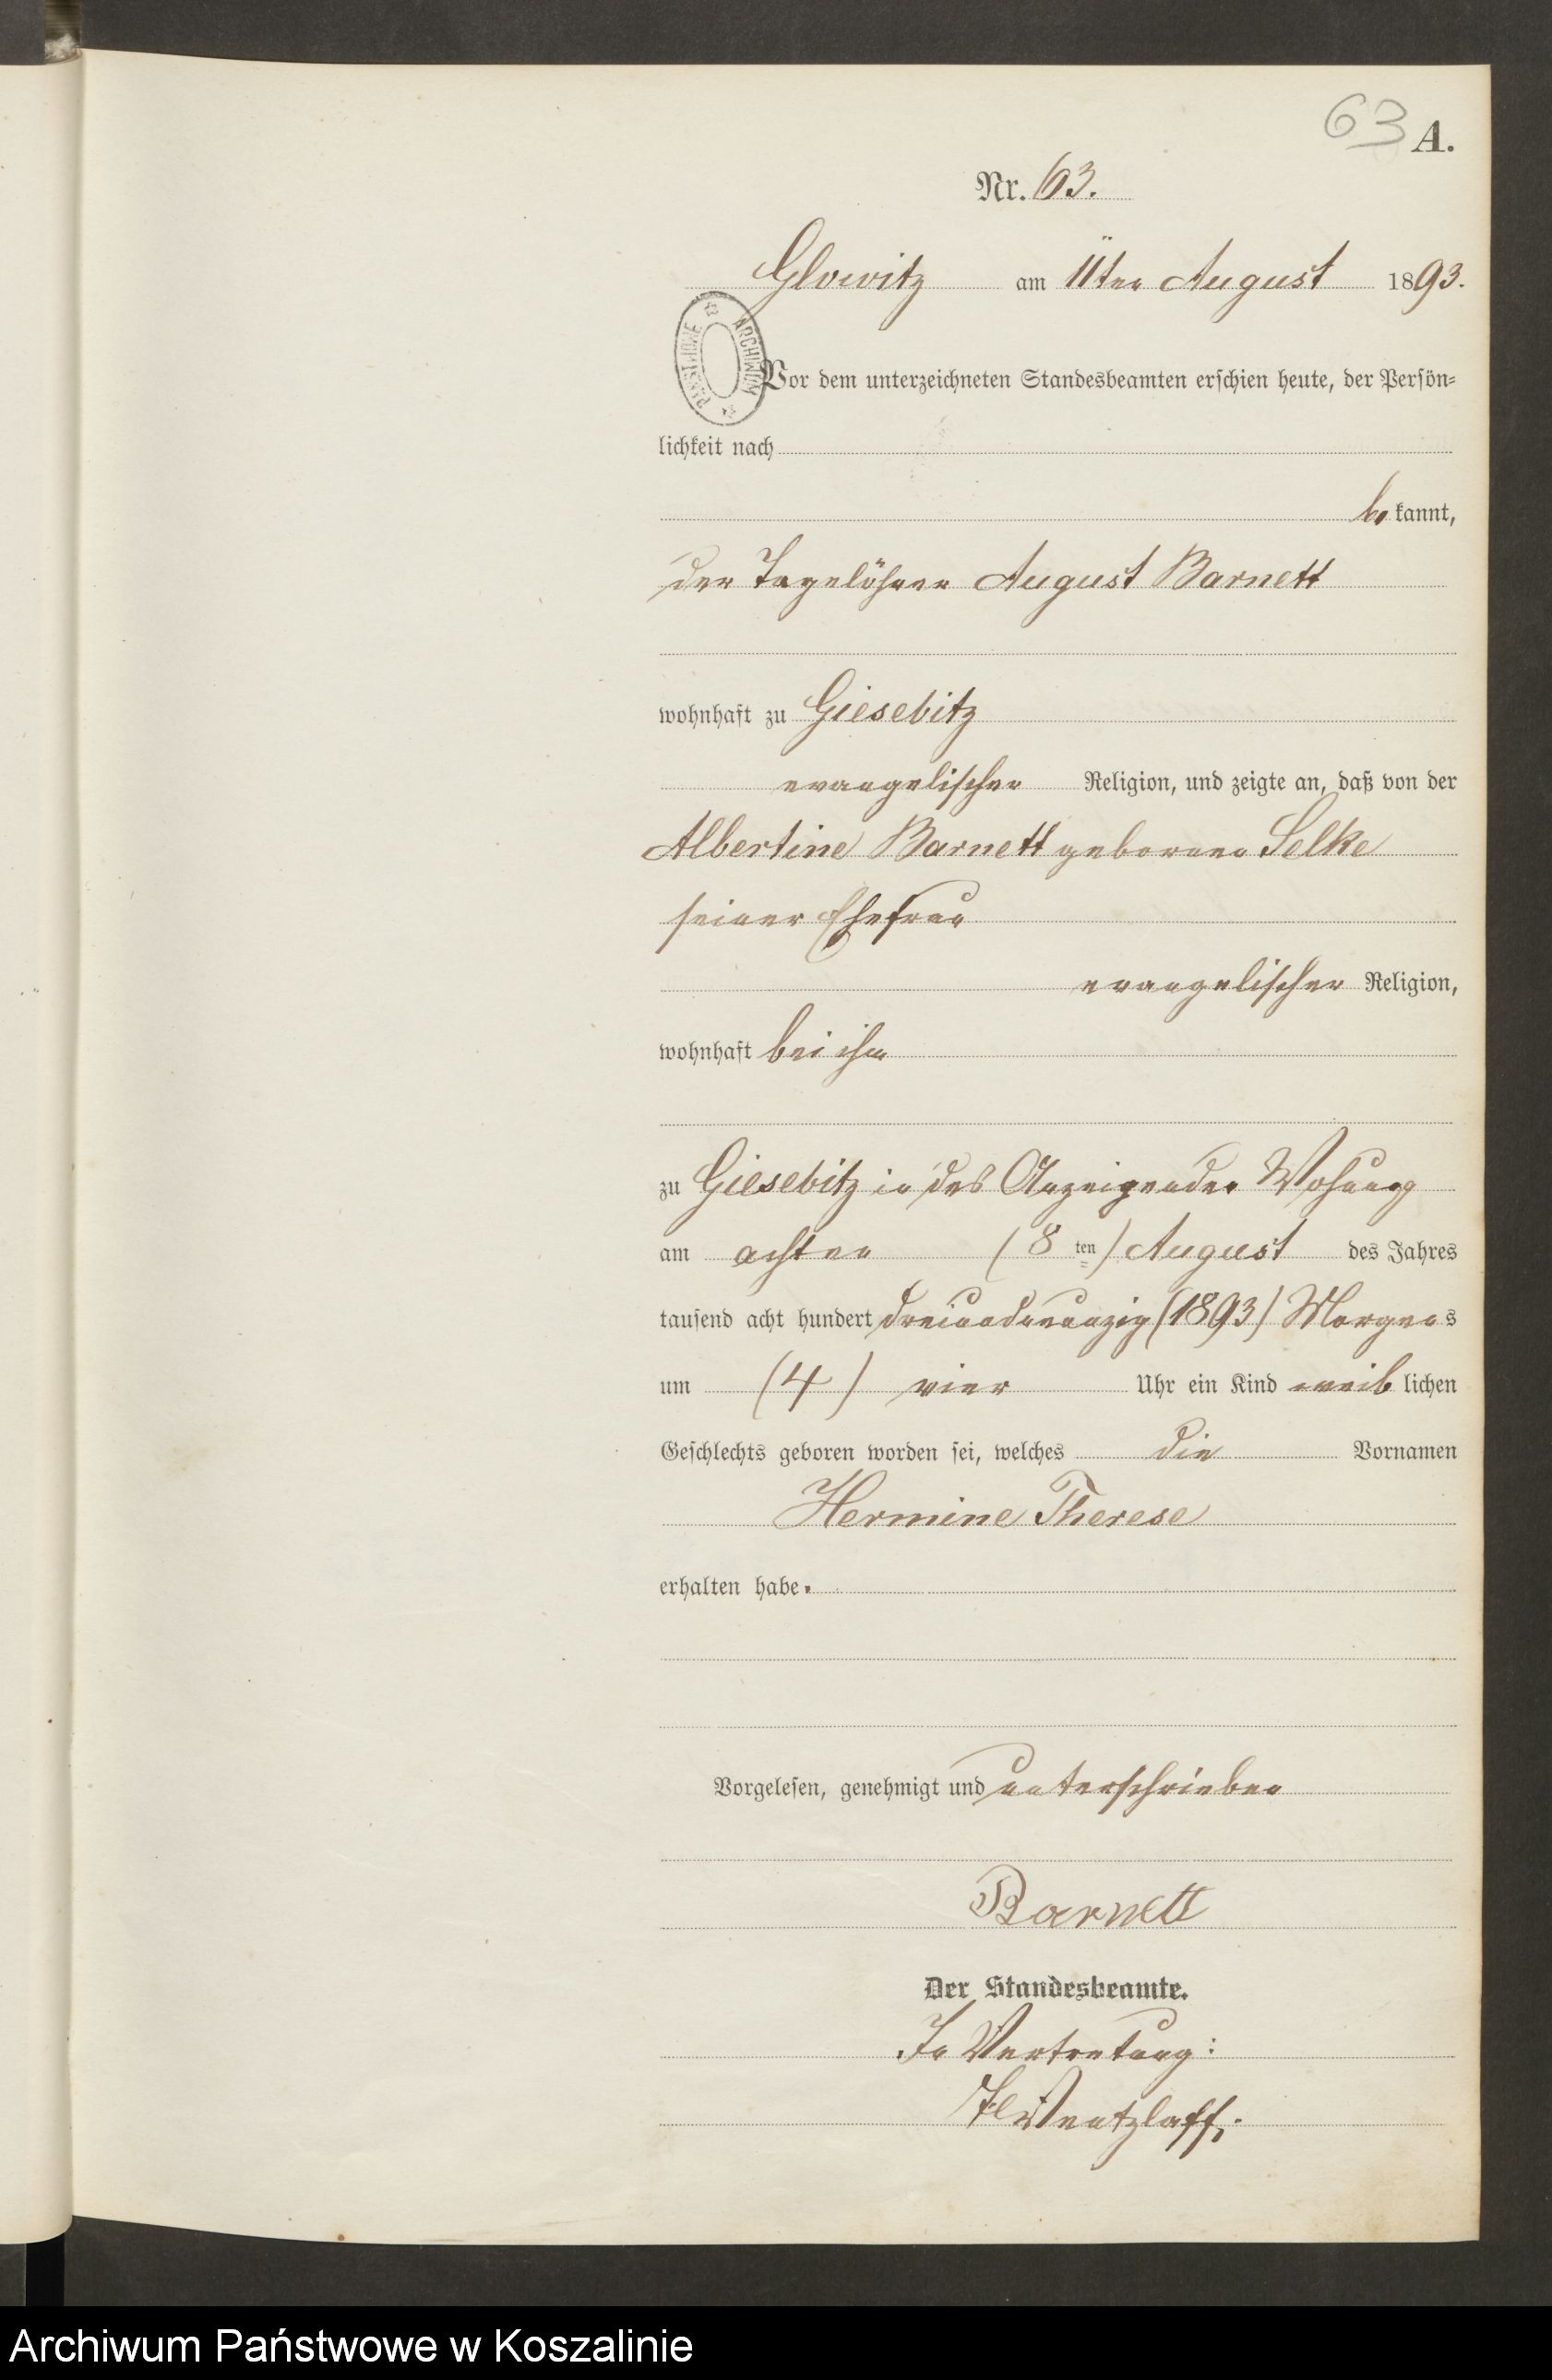 63 A.
Nr. 63.
Glowitz am 11ten August 1893.
PAŃSTWOWE ARCHIWUM
Vor dem unterzeichneten Standesbeamten erschien heute, der Persön=
lichkeit nach
be kannt,
der Tagelöhner August Barnett
wohnhaft zu Giesebitz
evangelischer Religion, und zeigte an, daß von der
Albertine Barnett geborene Selke
seiner Ehefrau
evangelischer Religion,
wohnhaft bei ihm
zu Giesebitz in des Anzeigenden Wohnung
am achten (8 ten) August des Jahres
tausend acht hundert dreiundneunzig (1893) Morgens
um (4) vier Uhr ein Kind weib lichen
Geschlechts geboren worden sei, welches die Vornamen
Hermine Therese
erhalten habe.
Vorgelesen, genehmigt und unterschrieben
Barnett
Der Standesbeamte.
In Vertretung:
Wentzlaff.
Archiwum Państwowe w Koszalinie